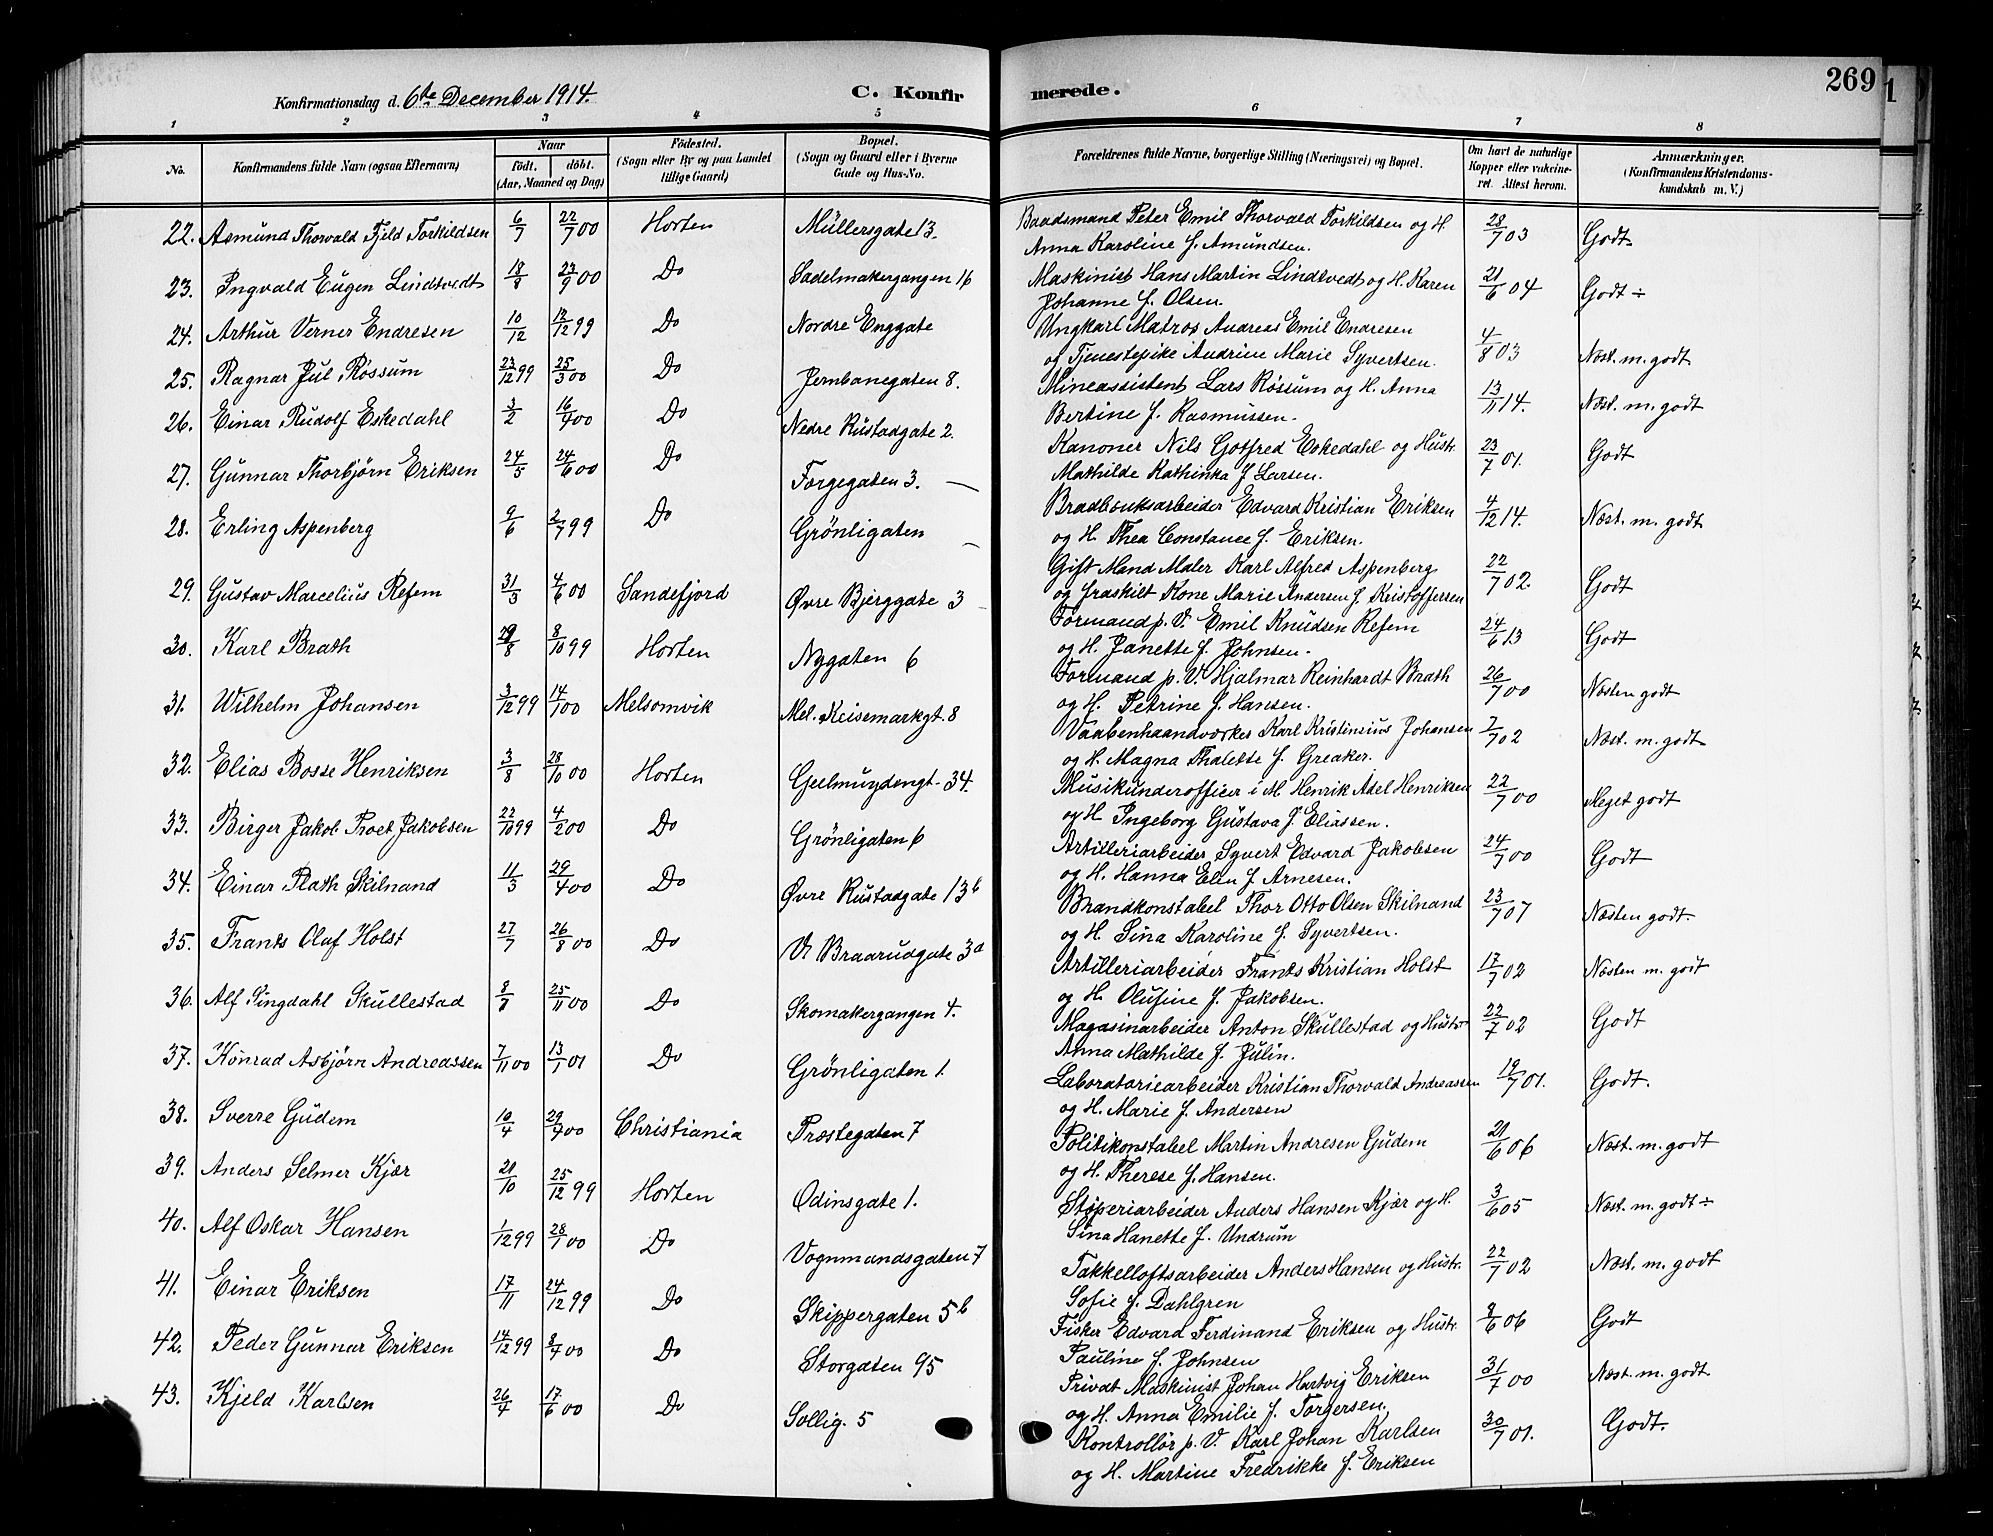 Konfirmationsdag d. 6te December 1914.
C. Konfirmerede.
269
1 2 3 4 5 6 7 8
No.
Konfirmandens fulde Navn (ogsaa Efternavn)
Naar
født. døbt.
(Aar, Maaned og Dag)
Fødested.
(Sogn eller By og paa Landet
tillige Gaard)
Bopæl.
(Sogn og Gaard eller i Byerne
Gade og Hus-No.
Forældrenes fulde Navne, borgerlige Stilling (Næringsvei) og Bopæl.
Om havt de naturlige
Kopper eller vakcine-
ret. Attest herom.
Anmærkninger.
(Konfirmandens Kristendoms-
kundskab m. V.)
22. Asmund Thorvald Fjeld Torkildsen 6/7 22/7 00 Horten Müllersgate 13. Baadsmand Peter Emil Thorvald Torkildsen og H. 28/7 03 Godt
Anna Karoline f. Amundsen.
23. Ingvald Eugen Lindtvedt 18/8 23/9 00 Do Sadelmakergangen 16 Maskinist Hans Martin Lindtvedt og H. Karen 21/6 04 Godt ÷
Johanne f. Olsen.
24. Arthur Verner Endresen 10/12 12/12 99 Do Nordre Enggate Ungkarl Matros Andreas Emil Endresen 4/8 03 Næst. m. godt
og Tjenestepike Andrine Marie Syvertsen.
25. Ragnar Jul Røssum 23/12 99 25/3 00 Do Jernbanegaten 8. Mineassistent Lars Røssum og H. Anna 13/11 14. Næst. m. godt
Bertine f. Rasmussen.
26. Einar Rudolf Eskedahl 3/2 16/4 00 Do Nedre Rustadgate 2. Kanoner Nils Gotfred Eskedahl og Hustr. 23/7 01. Godt
Mathilde Kathinka f Larsen.
27. Gunnar Thorbjørn Eriksen 24/5 24/6 00 Do Torgegaten 3. Eriksen 4/12 14. Næst. m. godt
og H. Thea Constance f. Eriksen.
28. Erling Aspenberg 9/6 2/7 99 Do Grönligaten Gift Mand Maler Karl Alfred Aspenberg 22/7 02. Godt
og fraskilt Kone Marie Andersen f. Kristoffersen
29. Gustav Marcelius Refem 31/3 4/6 00 Sandefjord Øvre Bjerggate 3 Formand p. V. Emil Knudsen Refem 24/6 13 Godt
og H. Janette f. Johnsen.
30. Karl Brath 29/8 8/10 99 Horten Nygaten 6 Formand p. V. Hjalmar Reinhardt Brath 26/7 00 Næsten godt
og H. Petrine f. Hansen.
31. Wilhelm Johansen 3/12 99 14/1 00 Melsomvik Mel. Keisemarkgt. 8 Vaabenhaandværker Karl Kristensius Johansen 7/7 02 Næst. m. godt
og H. Magna Thalette f. Greaker.
32. Elias Bosse Henriksen 3/8 28/10 00 Horten Geelmuydengt. 34. Musikunderofficer i M Henrik Adel Henriksen 22/7 00 Meget godt
og H Ingeborg Gustava f. Eliassen.
33. Birger Jakob Proet Jakobsen 22/10 99 4/2 00 Do Grönligaten 6 Artilleriarbeider Syvert Edvard Jakobsen 24/7 00 Godt
og H. Hanna Elen f Arnesen.
34. Einar Plath Skilnand 11/3 29/4 00 Do Øvre Rustadgate 13b Brandkonstabel Thor Otto Olsen Skilnand 23/7 07 Næsten godt
og H. Sina Karoline f. Syvertsen.
35. Frants Olaf Holst 27/7 26/8 00 Do V. Braarudgate 3a Artilleriarbeider Frants Kristian Holst 17/7 02 Næsten m. godt
og H. Olufine f. Jakobsen.
36. Alf Singdahl Skullestad 8/7 25/11 00 Do Skomakergangen 4. Magasinarbeider Anton Skullestad og Hustr 22/7 02 Godt
Anna Mathilde f. Julin.
37. Konrad Asbjørn Andreassen 7/11 00 13/1 01 Do Grönligaten 1. Laboratoriearbeider Kristian Thorvald Andreassen 19/7 01. Godt.
og H. Marie f. Andersen
38. Sverre Gudem 10/4 29/7 00 Christiania Præstegaten 7 Politikonstabel Martin Andresen Gudem 21/6 06 Næst. m. godt
og H. Therese f. Hansen.
39. Anders Selmer Kjær 21/10 25/12 99 Horten Odinsgate 1. Støperiarbeider Anders Hansen Kjær og H. 3/6 05 Næst. m. godt ÷
Sina Hanette f. Undrum
40. Alf Oskar Hansen 1/12 99 28/1 00 Do Vognmandsgaten 7 Takkelloftsarbeider Anders Hansen og Hustr. 22/7 02 Næst. m. godt
Sofie f. Dahlgren
41. Einar Eriksen 17/11 24/12 99 Do Skippergaten 5b Fisker Edvard Ferdinand Eriksen og Hustr. 8/6 06 Godt
Pauline f. Johnsen
42. Peder Gunnar Eriksen 14/12 99 8/7 00 Do Storgaten 95 Privat Maskinist Johan Hartvig Eriksen 31/7 00 Næst. m. godt
og H. Anna Emilie f. Torgersen.
43. Kjeld Karlsen 26/4 17/6 00 Do Sollig. 5 Kontrollör p. V. Karl Johan Karlsen 30/7 01. Godt.
og H. Martine Fredrikke f. Eriksen